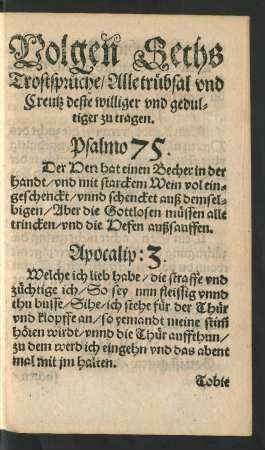 Volgen Sechs
Trostsprüche/ Alle trübsal vnd
Creutz deste williger vnd gedul-
tiger zu tragen.
Psalmo 75.
Der Herr hat einen Becher in der
handt/ vnd mit starckem Wein vol ein-
geschenckt/ vnnd schencket auß demsel-
bigen/ Aber die Gottlosen müssen alle
trincken/ vnd die Hefen außsauffen.
Apocalip: 3.
Welche ich lieb habe/ die straffe vnd
züchtige ich/ So sey nun fleissig vnnd
thu busse/ Sihe/ ich stehe für der Thür
vnd klopffe an/ so yemandt meine stim̃
hören wirdt/ vnnd die Thür auffthun/
zu dem werd ich eingehn vnd das abent
mal mit jm halten.
Tobie